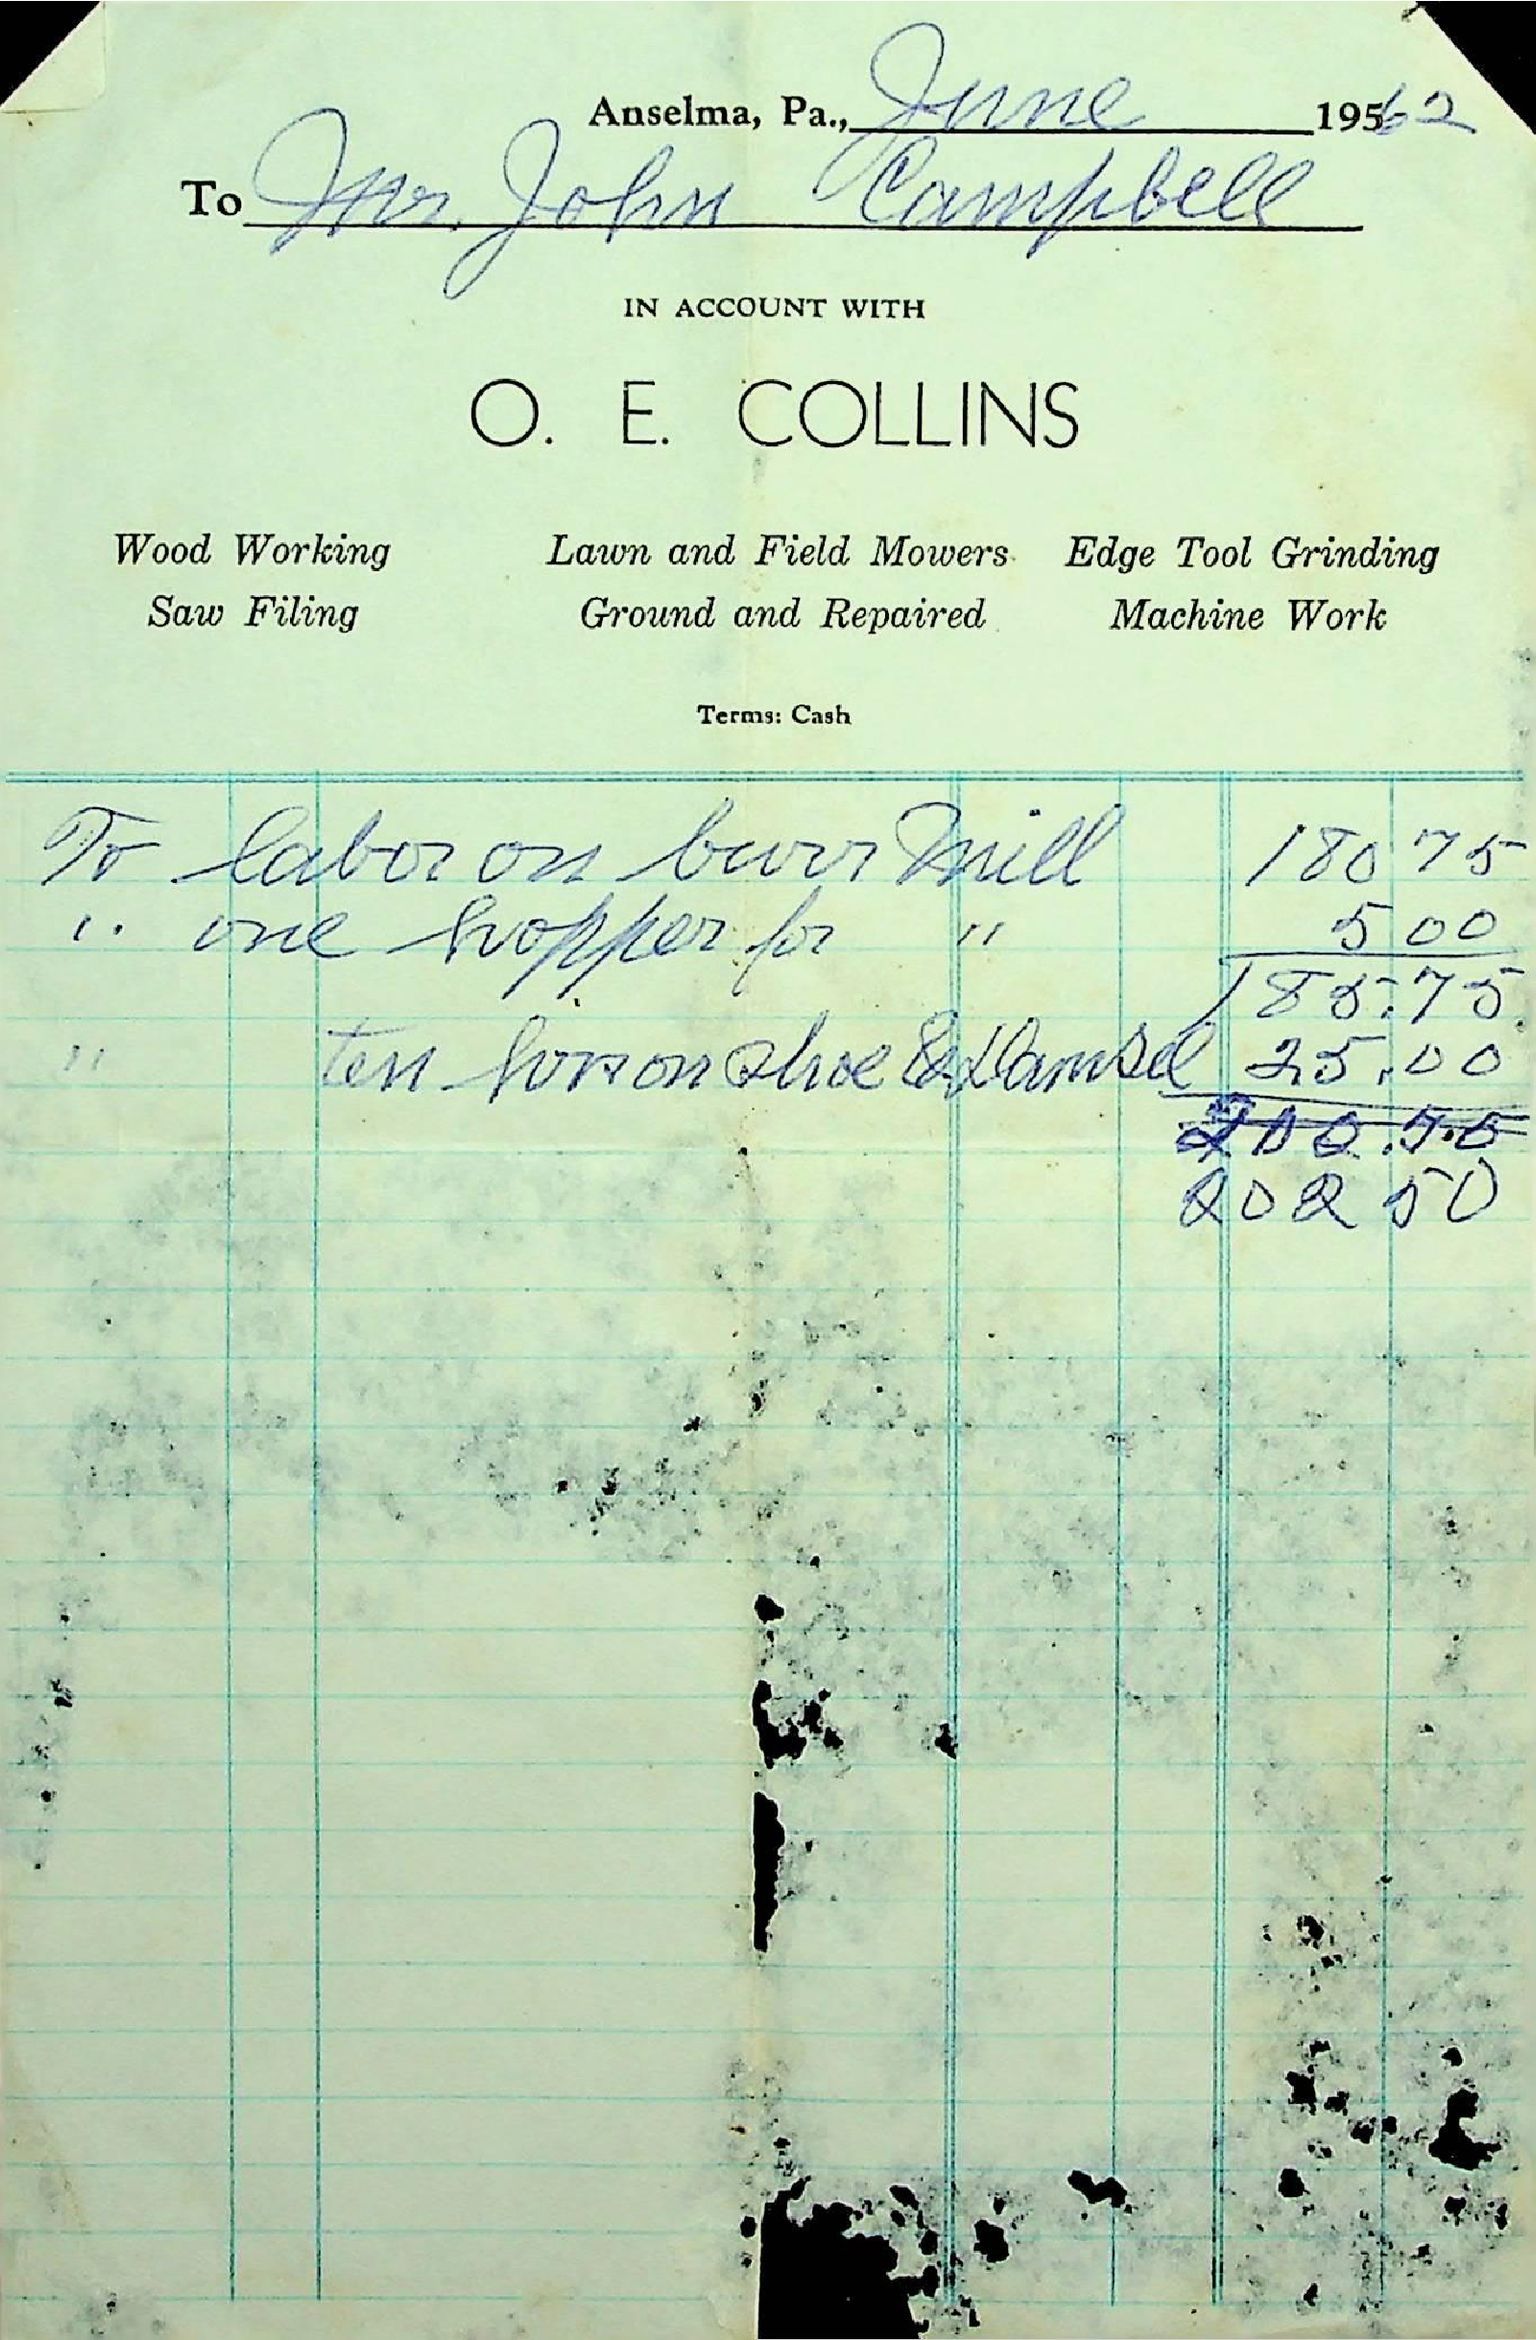 Anselma, Pa., June 19562
To Mr. John Campbell
IN ACCOUNT WITH
O. E. COLLINS
Wood Working Lawn and Field Mowers Edge Tool Grinding
Saw Filing Ground and Repaired Machine Work
Terms: Cash
To labor on burr Mill 180 75
" one hopper for " 5 00
185.75
" ten hors on shoe & Damsel 25.00
202 50